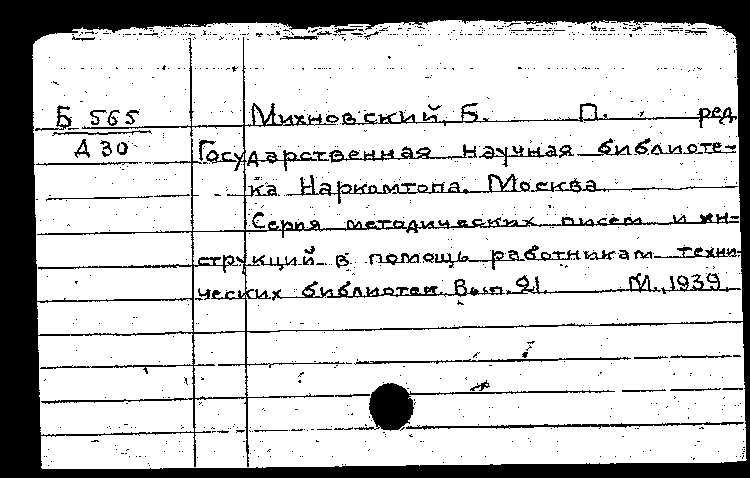 Б 565
Д 30
Михновский, Б. П. ред.
Государственная научная библиоте-
ка Наркомтопа. Москва.
Серия методических писем и ин-
струкций в помощь работникам техни-
ческих библиотек. Вып. 21. М., 1939.